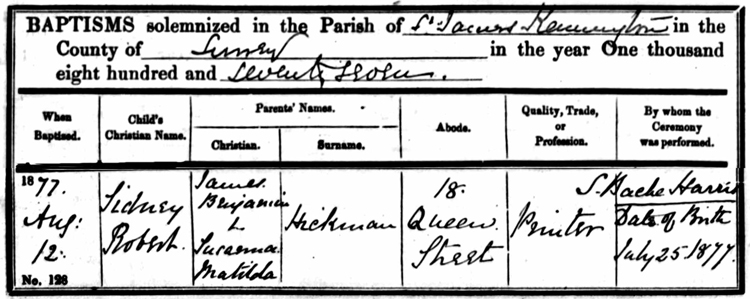 BAPTISMS solemnized in the Parish of St James Kennington in the
County of Surrey in the year One thousand
eight hundred and seventy seven.
When Baptised.
Child's Christian Name.
Parents' Names.
Christian.
Surname.
Abode.
Quality, Trade, or Profession.
By whom the Ceremony was performed.
1877.
Aug:
12.
No. 128
Sidney
Robert.
James
Benjamin
&
Matilda
Hickman
18.
Queen
Street
Printer
S. Bache Harris
Date of Birth
July 25 1877.